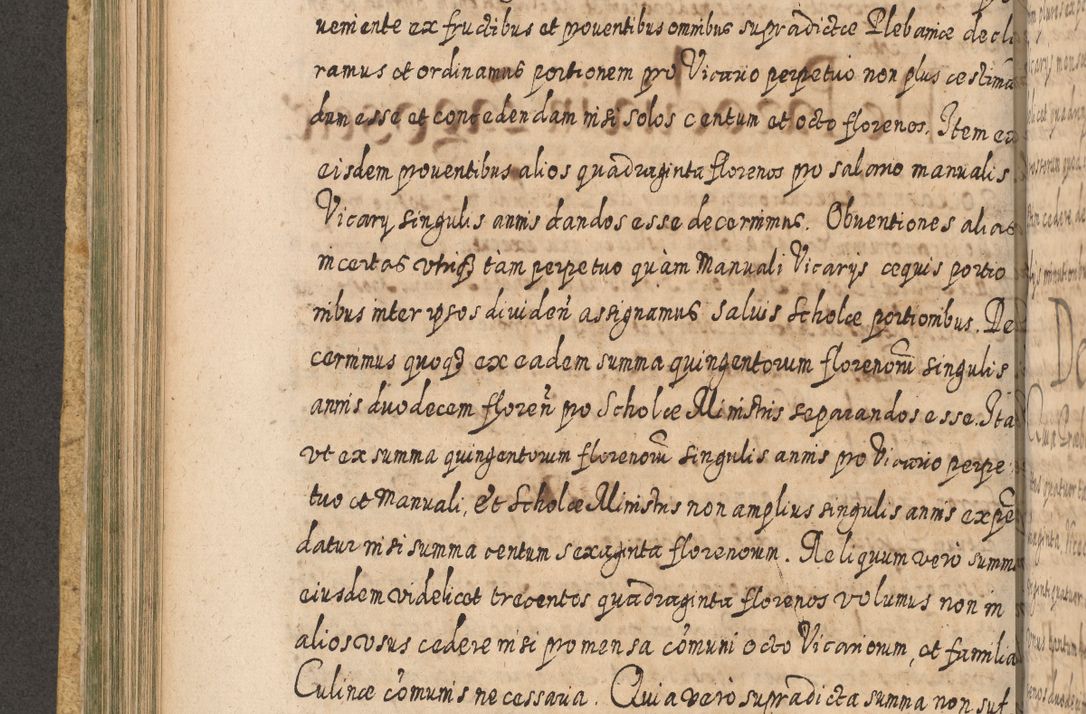 ueniente ex fructibus et prouentibus omnibus supradictæ Plebaniæ decla
ramus et ordinamus portionem pro Vicario perpetuo non plus æstiman
dam esse et concedendam nisi solos centum et octo florenos. Item ex
eisdem prouentibus alios quadraginta florenos pro salario manualis
Vicarij singulis annis dandos esse decernimus. Obuentiones alias
incertas utriq3 tam perpetuo quàm Manuali Vicarijs æquis portio
nibus inter ipsos dividen̄ assignamus saluis Scholæ portionibus. De
cernimus quoq3 ex eadem summa quingentorum florenorū singulis
annis duodecem floren̄ pro Scholæ Ministris separandos esse. Ita
ut ex summa quingentorum florenorū singulis annis pro Vicario perpe
tuo et Manuali, et Scholæ Ministris non amplius singulis annis expē
datur nisi summa centum sexaginta florenorum. Reliquum verò summæ
eiusdem videlicet trecentos quadraginta florenos volumus non in
alios usus cedere nisi pro mensa cōmuni octo Vicariorum, et familia
Culinæ cōmunis necessaria. Quia verò supradicta summa non suf